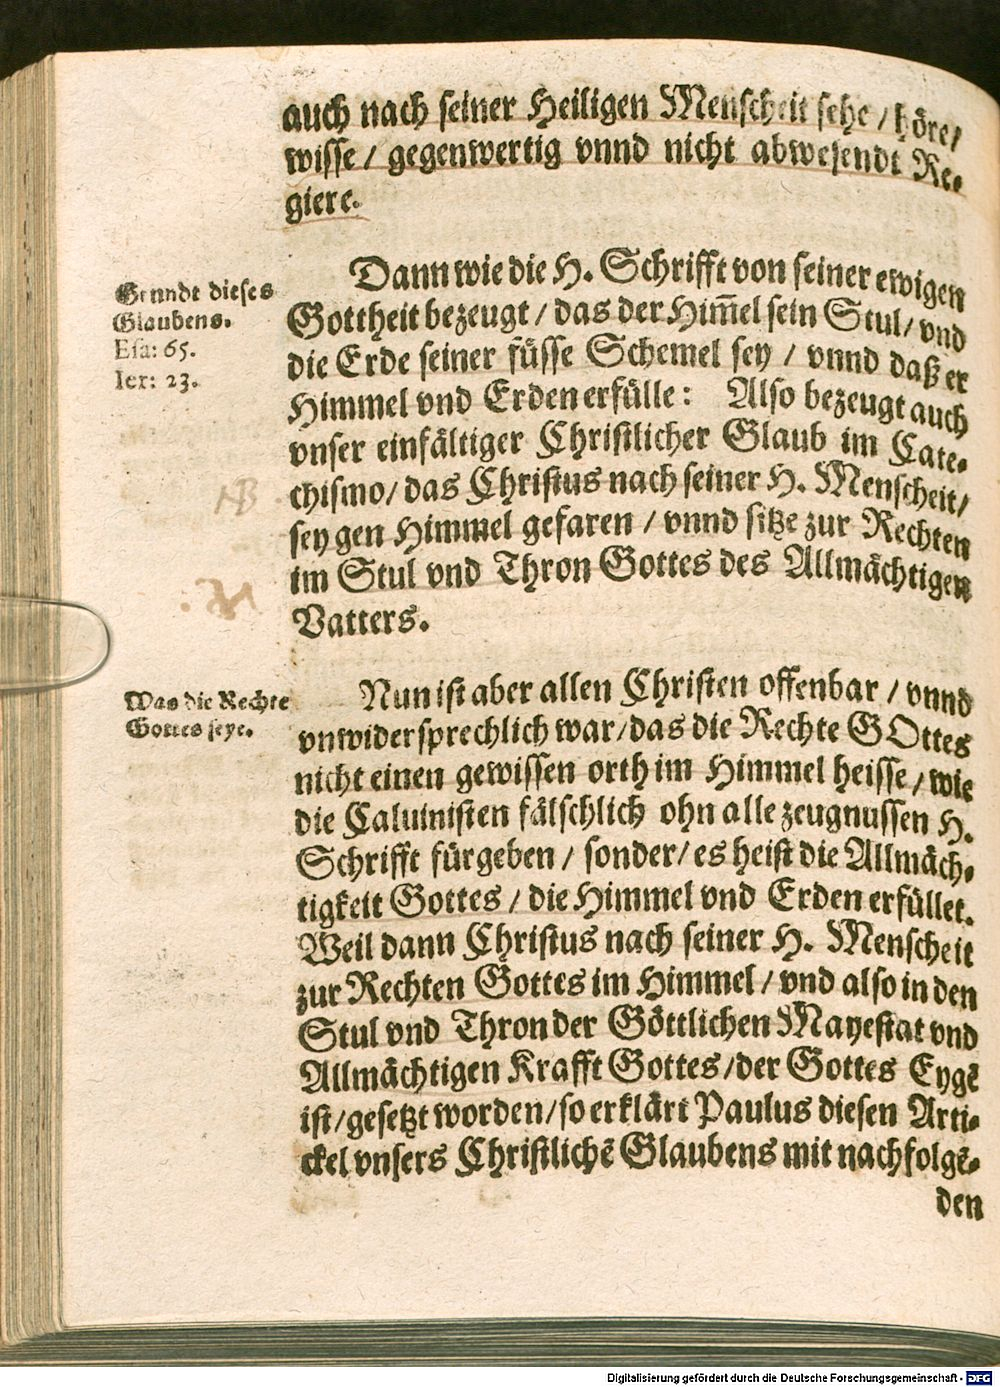 auch nach seiner Heiligen Menscheit sehe / höre/
wisse / gegenwertig vnnd nicht abwesendt Re-
giere.
Grundt dieses
Glaubens.
Esa: 65.
Ier: 23.
Dann wie die H. Schrifft von seiner ewigen
Gottheit bezeugt / das der Him̄el sein Stul/ vnd
die Erde seiner füsse Schemel sey / vnnd daß er
Himmel vnd Erden erfülle: Also bezeugt auch
vnser einfältiger Christlicher Glaub im Cate-
chismo/ das Christus nach seiner H. Menscheit/
sey gen Himmel gefaren / vnnd sitze zur Rechten
im Stul vnd Thron Gottes des Allmächtigen
Vatters.
NB
Was die Rechte
Gottes seye.
Nun ist aber allen Christen offenbar / vnnd
vnwidersprechlich war/das die Rechte GOttes
nicht einen gewissen orth im Himmel heisse / wie
die Caluinisten fälschlich ohn alle zeugnussen H.
Schrifft fürgeben / sonder/ es heist die Allmäch-
tigkeit Gottes / die Himmel vnd Erden erfüllet.
Weil dann Christus nach seiner H. Menscheit
zur Rechten Gottes im Himmel / vnd also in den
Stul vnd Thron der Göttlichen Mayestat vnd
Allmächtigen Krafft Gottes /der Gottes Eygē
ist/gesetzt worden/so erklärt Paulus diesen Arti-
ckel vnsers Christlichē Glaubens mit nachfolgē-
den
Digitalisierung gefördert durch die Deutsche Forschungsgemeinschaft - DFG